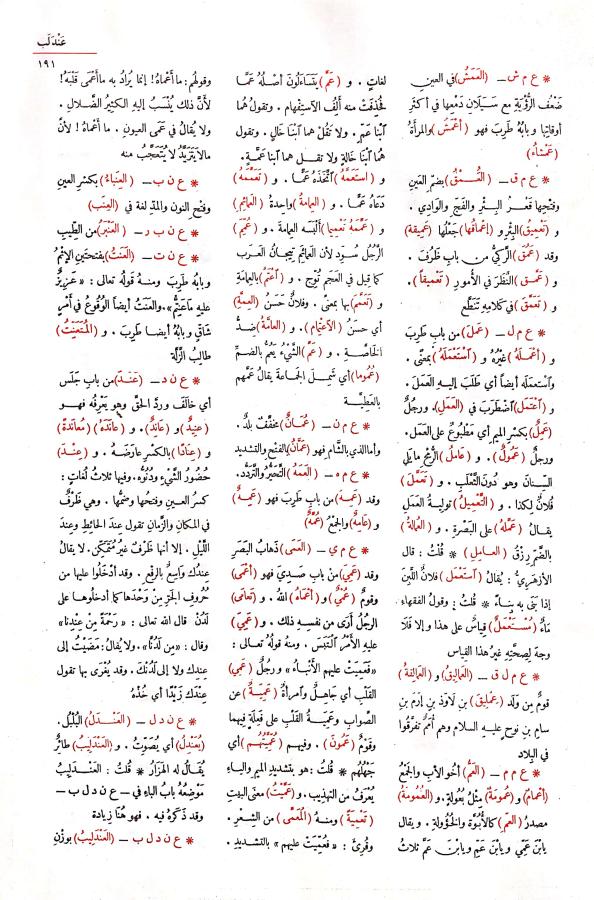 عَنْدَلَب
١٩١
* ع م ش – (العَمَشُ) في العين
ضَعْف الرُّؤْيَةِ مع سَيَلَانِ دَمْعِها في أَكْثَرِ
أوقاتِها وبابُهُ طَرِبَ فهو (أَعْمَشُ) والمرأةُ
(عَمْشَاءُ)
* ع م ق – (العُمْقُ) بضَمِّ العَيْنِ
وفَتْحِها قَعْرُ البِئْرِ والفَجِّ والوَادِي .
و (تَعْمِيقُ) البِئْرِ و (إعْمَاقُها) جَعْلُها (عَمِيقَة)
وقد (عَمُقَ) الرَّكِيُّ من بابِ ظَرُفَ .
و (عَمَّقَ) النَّظَرَ في الأُمورِ (تَعْمِيقاً) .
و (تَعَمَّقَ) في كلامِهِ تَنَطَّعَ
* ع م ل – (عَمِلَ) من باب طَرِبَ
و (أَعْمَلَهُ) غَيْرُهُ و (ٱسْتَعْمَلَهُ) بمعنًى .
وٱستَعمَلَه أيضاً أي طَلَبَ إليهِ العَمَلَ .
و (ٱعْتَمَلَ) ٱضْطَرَبَ في (العَمَلِ) . ورجُلٌ
(عَمِلٌ) بكَسْرِ الميمِ أي مَطْبُوعٌ على العَمَل .
ورجلٌ (عَمُولٌ) . و (عَامِلُ) الرُّمْحِ ما يَلِي
السِّنَانَ وهو دُونَ الثَّعْلَبِ . و (تَعَمَّلَ)
فُلانٌ لكذا . و (التَّعْمِيلُ) توليةُ العَمَل
يقالُ (عَمَّلَهُ) على البَصْرَةِ . و (العُمَالةُ)
بالضَّمِّ رِزْقُ (العامِلِ) * قُلْتُ : قال
الأزهَرِيُّ : يُقالُ (ٱسْتَعْمَلَ) فلانٌ اللَّبِنَ
إذا بَنَى به بِنَاءً * قُلْتُ : وقولُ الفقهاءِ
مَاءٌ (مُسْتَعْمَلٌ) قِياسٌ على هذا وإلا فَلَا
وجهَ لِصِحَّتِهِ غيرُ هذا القِياسِ
* ع م ل ق – (العَمَالِيقُ) و (العَمَالِقَةُ)
قومٌ مِن وَلَدِ (عِمْلِيقَ) بنِ لَاوَذَ بنِ إرَمَ بنِ
سامِ بنِ نوحٍ عليه السلام وهم أُمَمٌ تَفَرَّقُوا
في البِلَاد
* ع م م – (العَمُّ) أخو الأبِ والجَمْعُ
(أَعْمامٌ) و (عُمُومَةٌ) مِثْلُ بُعُولة . و (العُمُومَةُ)
مصدرُ (العَمِّ) كالأُبُوَّةِ والخُؤُولَةِ . ويقال
يابْنَ عَمِّي ويابْنَ عَمِّ ويابْنَ عَمَّ ثلاثُ
لغاتٍ . و (عَمَّ) يَتَسَاءَلُونَ أصلُهُ عَمَّا
فحُذِفَتْ منه ألِفُ الاسْتِفْهَامِ . وتقولُ هُمَا
ٱبْنَا عَمٍّ . ولا تَقُلْ هُمَا ٱبْنَا خَالٍ . وتقول
هُمَا ٱبْنَا خالةٍ ولا تقل هما ٱبنا عَمَّةٍ .
و (ٱستَعَمَّهُ) ٱتَّخَذَهُ عَمًّا . و (تَعَمَّمَهُ)
دَعَاهُ عَمًّا . و (العِمامةُ) واحدةُ (العَمائِمِ)
و (عَمَّمَهُ تَعْميما) أَلْبَسَه العِمامةَ . و (عُمِّمَ)
الرَّجُلُ سُوِّدَ لأن العَمائِمَ تِيجانُ العَرب
كما قيل في العَجَمِ تُوِّجَ . و (ٱعْتَمَّ) بالعِمامَةِ
و (تَعَمَّمَ) بها بمعنًى . وفلانٌ حَسَنُ (العِمَّةِ)
أي حسنُ (الاِعْتِمَامِ) . و (العامَّةُ) ضِدُّ
الخاصَّةِ . و (عَمَّ) الشَّيْءُ يَعُمُّ بالضمِّ
(عُمُوما) أي شَمِلَ الجَماعَةَ يقالُ عَمَّهم
بالعَطِيَّة
* ع م ن – (عُمَانُ) مخفَّفٌ بلدٌ .
وأما الذي بالشَّام فهو (عَمَّانُ) بالفتح والتشديد
* ع م ه – (العَمَهُ) التَّحَيُّرُ والتَّرَدُّدُ .
وقد (عَمِهَ) من باب طَرِبَ فهو (عَمِهٌ)
و (عَامِهٌ) والجمعُ (عُمَّهٌ)
* ع م ي – (العَمَى) ذَهابُ البَصَرِ
وقد (عَمِيَ) من باب صَدِيَ فهو (أَعْمَى)
وقومٌ (عُمْيٌ) و (أَعْمَاهُ) اللهُ . و (تَعَامَى)
الرجُلُ أَرَى من نفسِهِ ذلك . و (عَمِيَ)
عليه الأَمْرُ ٱلْتَبَسَ . ومنهُ قولُه تعالى :
« فَعَمِيَتْ عليهم الأَنْبَاءُ » ورجُلٌ (عَمِي)
القلْبِ أي جَاهِلٌ وٱمرأةٌ (عَمِيَةٌ) عن
الصَّوابِ وعَمِيَةُ القلْبِ على فَعِلَةٍ فيهما
وقَوْمٌ (عَمُونَ) . وفيهم (عَمِيَّتُهُم) أي
جَهْلُهُم * قُلْتُ : هو بتشديدِ الميمِ والياءِ
يُعْرَفُ من التهذيب . و (عَمَّيْتُ) معنَى البيتِ
(تَعْمِيَةً) ومنهُ (المُعَمَّى) من الشِّعْرِ .
وقُرِئَ : « فَعُمِّيَتْ عليهم » بالتشديد .
وقولُهم : ما أَعْمَاهُ ! إنما يُرَادُ به ما أَعْمَى قَلْبَهُ !
لأَنَّ ذلك يُنْسَبُ إليهِ الكثيرُ الضَّلالِ .
ولا يُقالُ في عَمَى العيونِ . ما أَعْمَاهُ ! لأَنَّ
مالا يَتَزَيَّدُ لا يُتَعَجَّبُ منه
* ع ن ب – (العِنَباءُ) بكسْرِ العينِ
وفتْحِ النون والمدّ لغة في (العِنَب)
* ع ن ب ر – (العَنْبَرُ) من الطِّيبِ
* ع ن ت – (العَنَتُ) بفتحتين الإثمُ
وبابهُ طَرِبَ ومنهُ قولُه تعالى : « عَزِيزٌ
عليه ما عَنِتُّمْ » . والعَنَتُ أيضاً الوُقُوعُ في أَمْرٍ
شَاقٍّ وبابُهُ أيضا طَرِبَ . و (المُتَعَنِّتُ)
طالبُ الزَّلَّة
* ع ن د – (عَنَدَ) من باب جَلَسَ
أي خالَفَ وردَّ الحَقَّ وهو يَعْرِفُه فهو
(عَنِيدٌ) و (عَانِدٌ) . و (عانَدَهُ) (مُعانَدَةً)
و (عِنَادًا) بالكَسْرِ عارضَهُ . و (عِنْدَ)
حُضُورُ الشَّيْءِ ودُنُوُّه . وفيها ثلاثُ لُغاتٍ :
كَسرُ العينِ وفتحُها وضمُّها . وهي ظَرْفٌ
في المكانِ والزَّمانِ تقول عندَ الحائِطِ وعندَ
اللَّيْل . إلا أنها ظَرْفٌ غيرُ مُتَمَكِّنٍ . لا يقالُ
عِندُك واسِعٌ بالرفعِ . وقد أَدْخَلُوا عليها من
حُرُوفِ الجَرِّ مِنْ وَحْدَها كما أدخلُوها على
لَدُنْ قال الله تعالى : « رَحْمَةً مِنْ عِنْدِنا »
وقال : « مِن لَدُنَّا » . ولا يُقالُ : مَضَيْتُ إلى
عِندِك ولا إلى لَدُنْكَ . وقد يُغْرَى بها تقول
عِنْدَك زَيْدًا أي خُذْهُ
* ع ن د ل – (العَنْدَلُ) البُلْبُل .
(يُعَنْدِلُ) أي يُصَوِّتُ . و (العَنْدَلِيبُ) طائرٌ
يُقالُ له الهَزَارُ * قُلْتُ : العَنْدَلِيبُ
مَوْضِعُهُ بابُ البَاءِ في – ع ن د ل ب –
وقد ذَكَرَهُ فيه . فهو هُنَا زيادة
* ع ن د ل ب – (العَنْدَلِيبُ) بوزْنِ